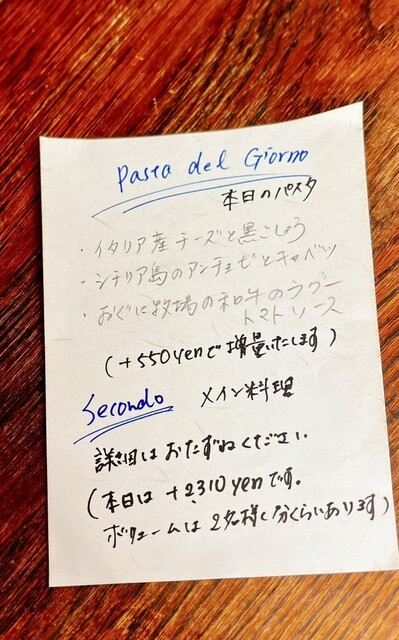 Pasta del Giorno
本日のパスタ
・イタリア産チーズと黒こしょう
・シチリア島のアンチョビとキャベツ
・おぐに牧場の和牛のラグー
トマトソース
(+550yenで増量いたします)
Secondo メイン料理
詳細はおたずねください
(本日は +2310yenです。
ボリュームは2名様分くらいあります)